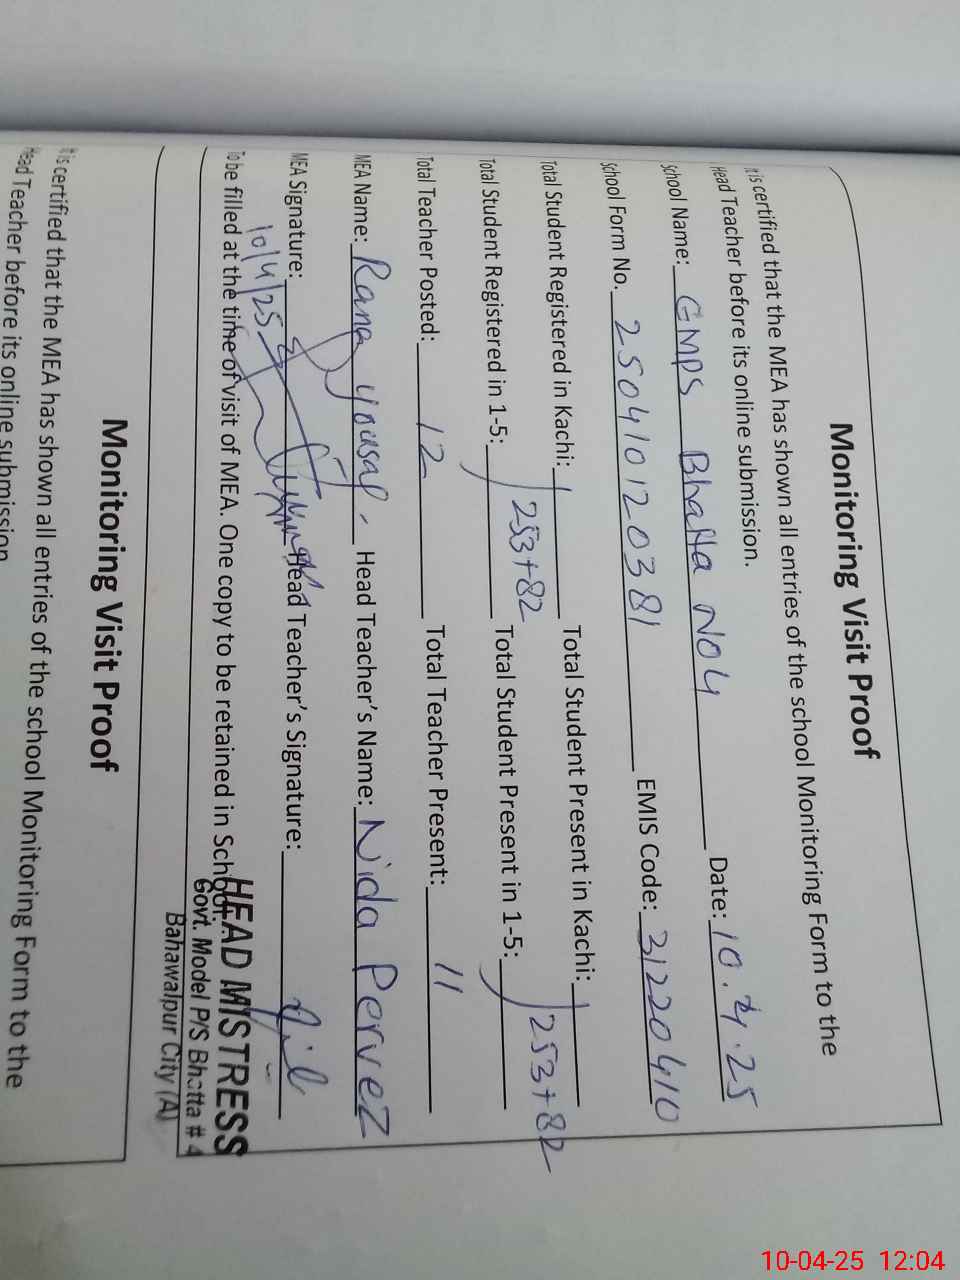 Monitoring Visit Proof
It is certified that the MEA has shown all entries of the school Monitoring Form to the
Head Teacher before its online submission.
School Name: GMPS Bhatta NO4 Date: 10.4.25
School Form No. 250410120381 EMIS Code: 31220410
Total Student Registered in Kachi: Total Student Present in Kachi:
253+82 253+82
Total Student Registered in 1-5: Total Student Present in 1-5:
Total Teacher Posted: 12 Total Teacher Present: 11
MEA Name: Rana yousaf. Head Teacher's Name: Nida Pervez
MEA Signature: Head Teacher's Signature:
10/4/25
To be filled at the time of visit of MEA. One copy to be retained in School.
HEAD MISTRESS
Govt. Model P/S Bhatta # 4
Bahawalpur City (A)
Monitoring Visit Proof
It is certified that the MEA has shown all entries of the school Monitoring Form to the
Head Teacher before its online submission
10-04-25 12:04